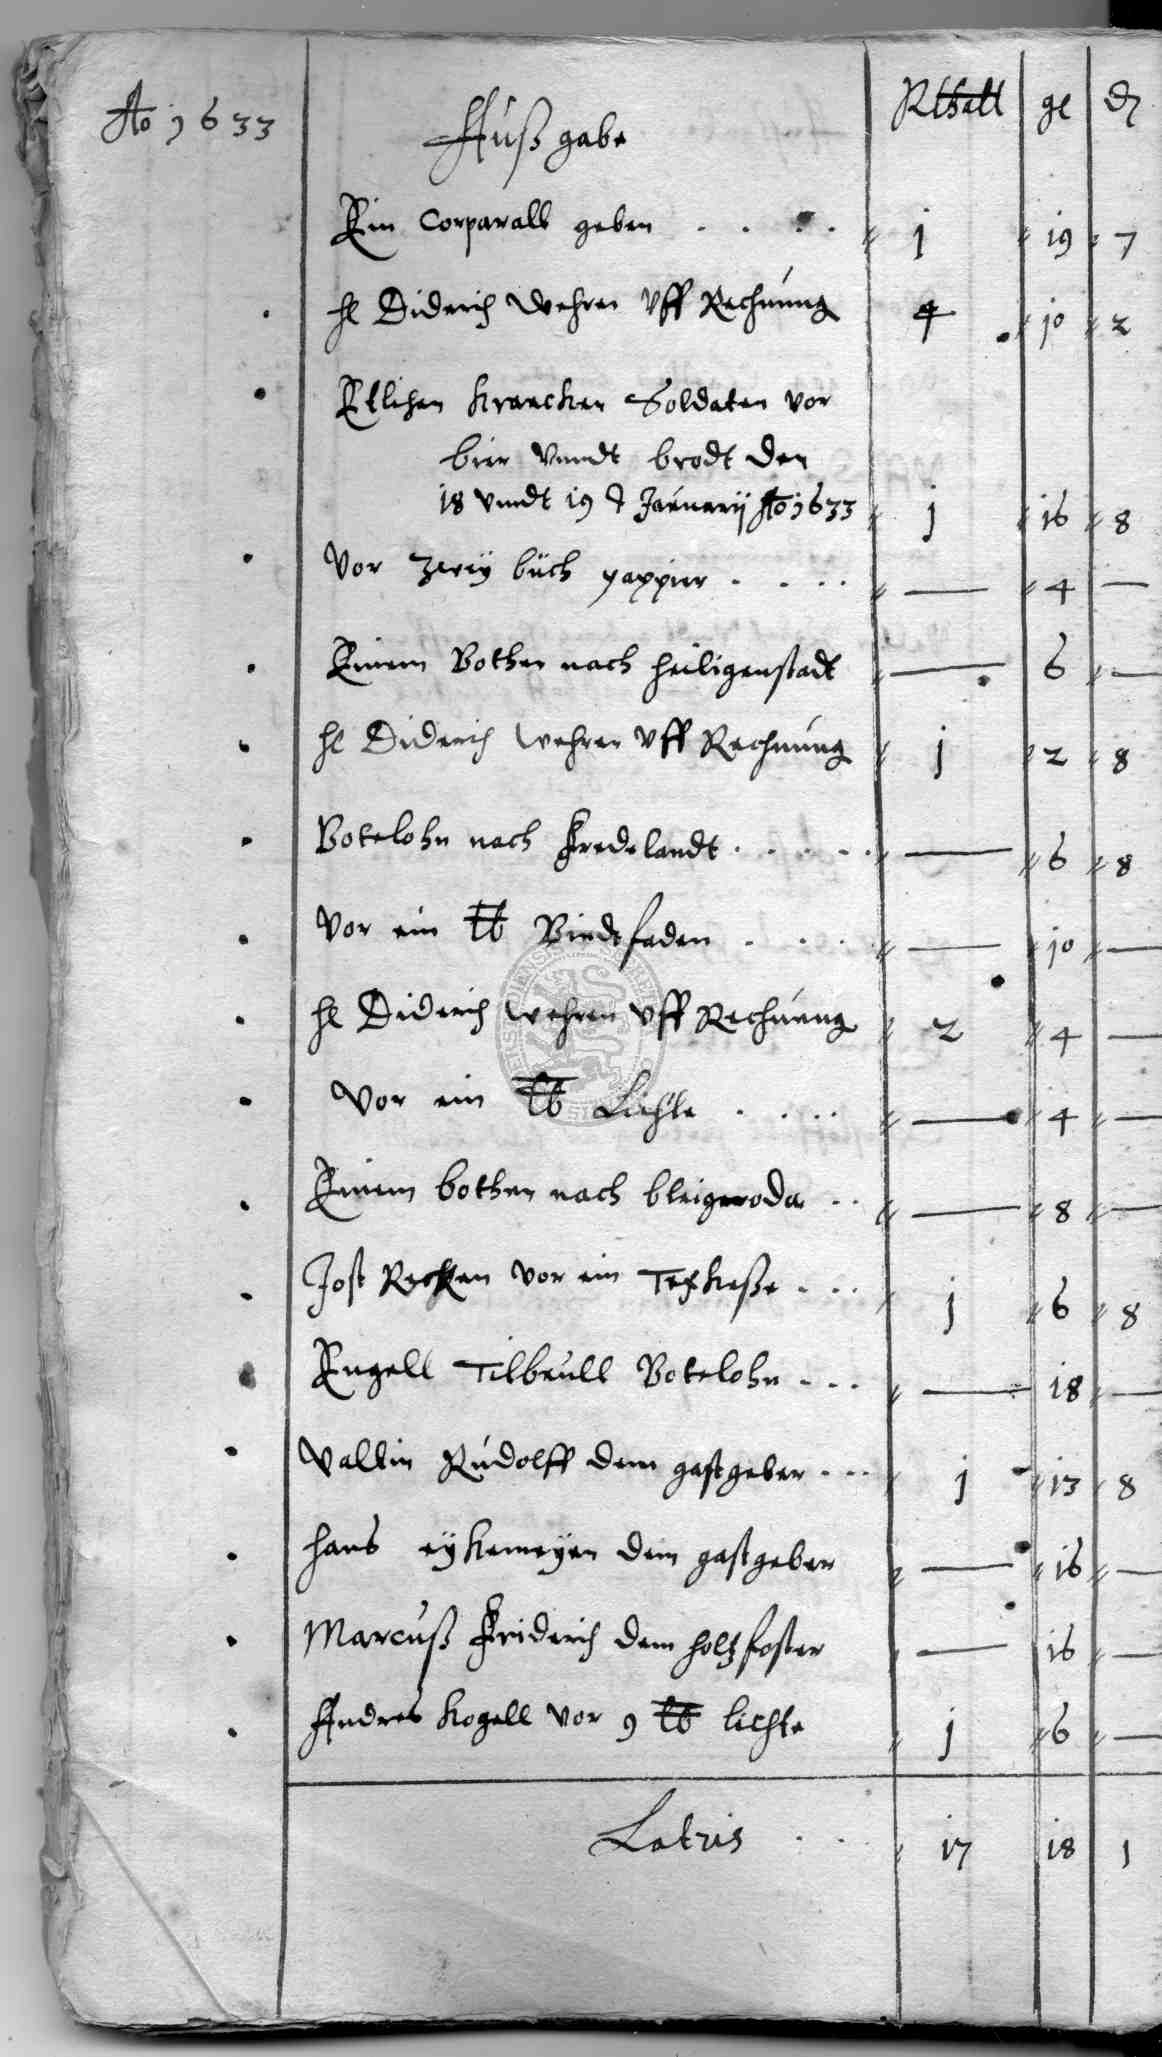 Ao 1633 Außgabe Rthall gl d
Ein Corparall geben . . . . 1 19 7
Hl Diderich Wehren uff Rechnung 4 10 2
Etlichen krancken Soldaten vor
bier unndt brodt den
18 unndt 19 Januarij Ao 1633 1 16 8
Vor zweÿ büch pappier . . . . — 4 —
Einem Bothen nach Heiligenstadt — 6 —
Hl Diderich Wehren uff Rechnung 1 2 8
Botelohn nach Fredelandt . . . . . — 6 8
Vor ein lb Bindtfaden . . . — 10 —
Hl Diderich Wehren uff Rechnung 2 4 —
Vor ein lb Lichte . . . . — 4 —
Einem bothen nach bleigeroda . . — 8 —
Jost vor ein . . . 1 6 8
Engell Tilbeull Botelohn . . . — 18 —
Valtin Rudolff dem gastgeber . . . 1 13 8
Hans eÿkemeÿen dem gastgeber — 16 —
Marcuß Friderich dem holtzfoster — 16 —
Andres Kogell vor 9 lb lichte 1 6 —
Latris . . . 17 18 1